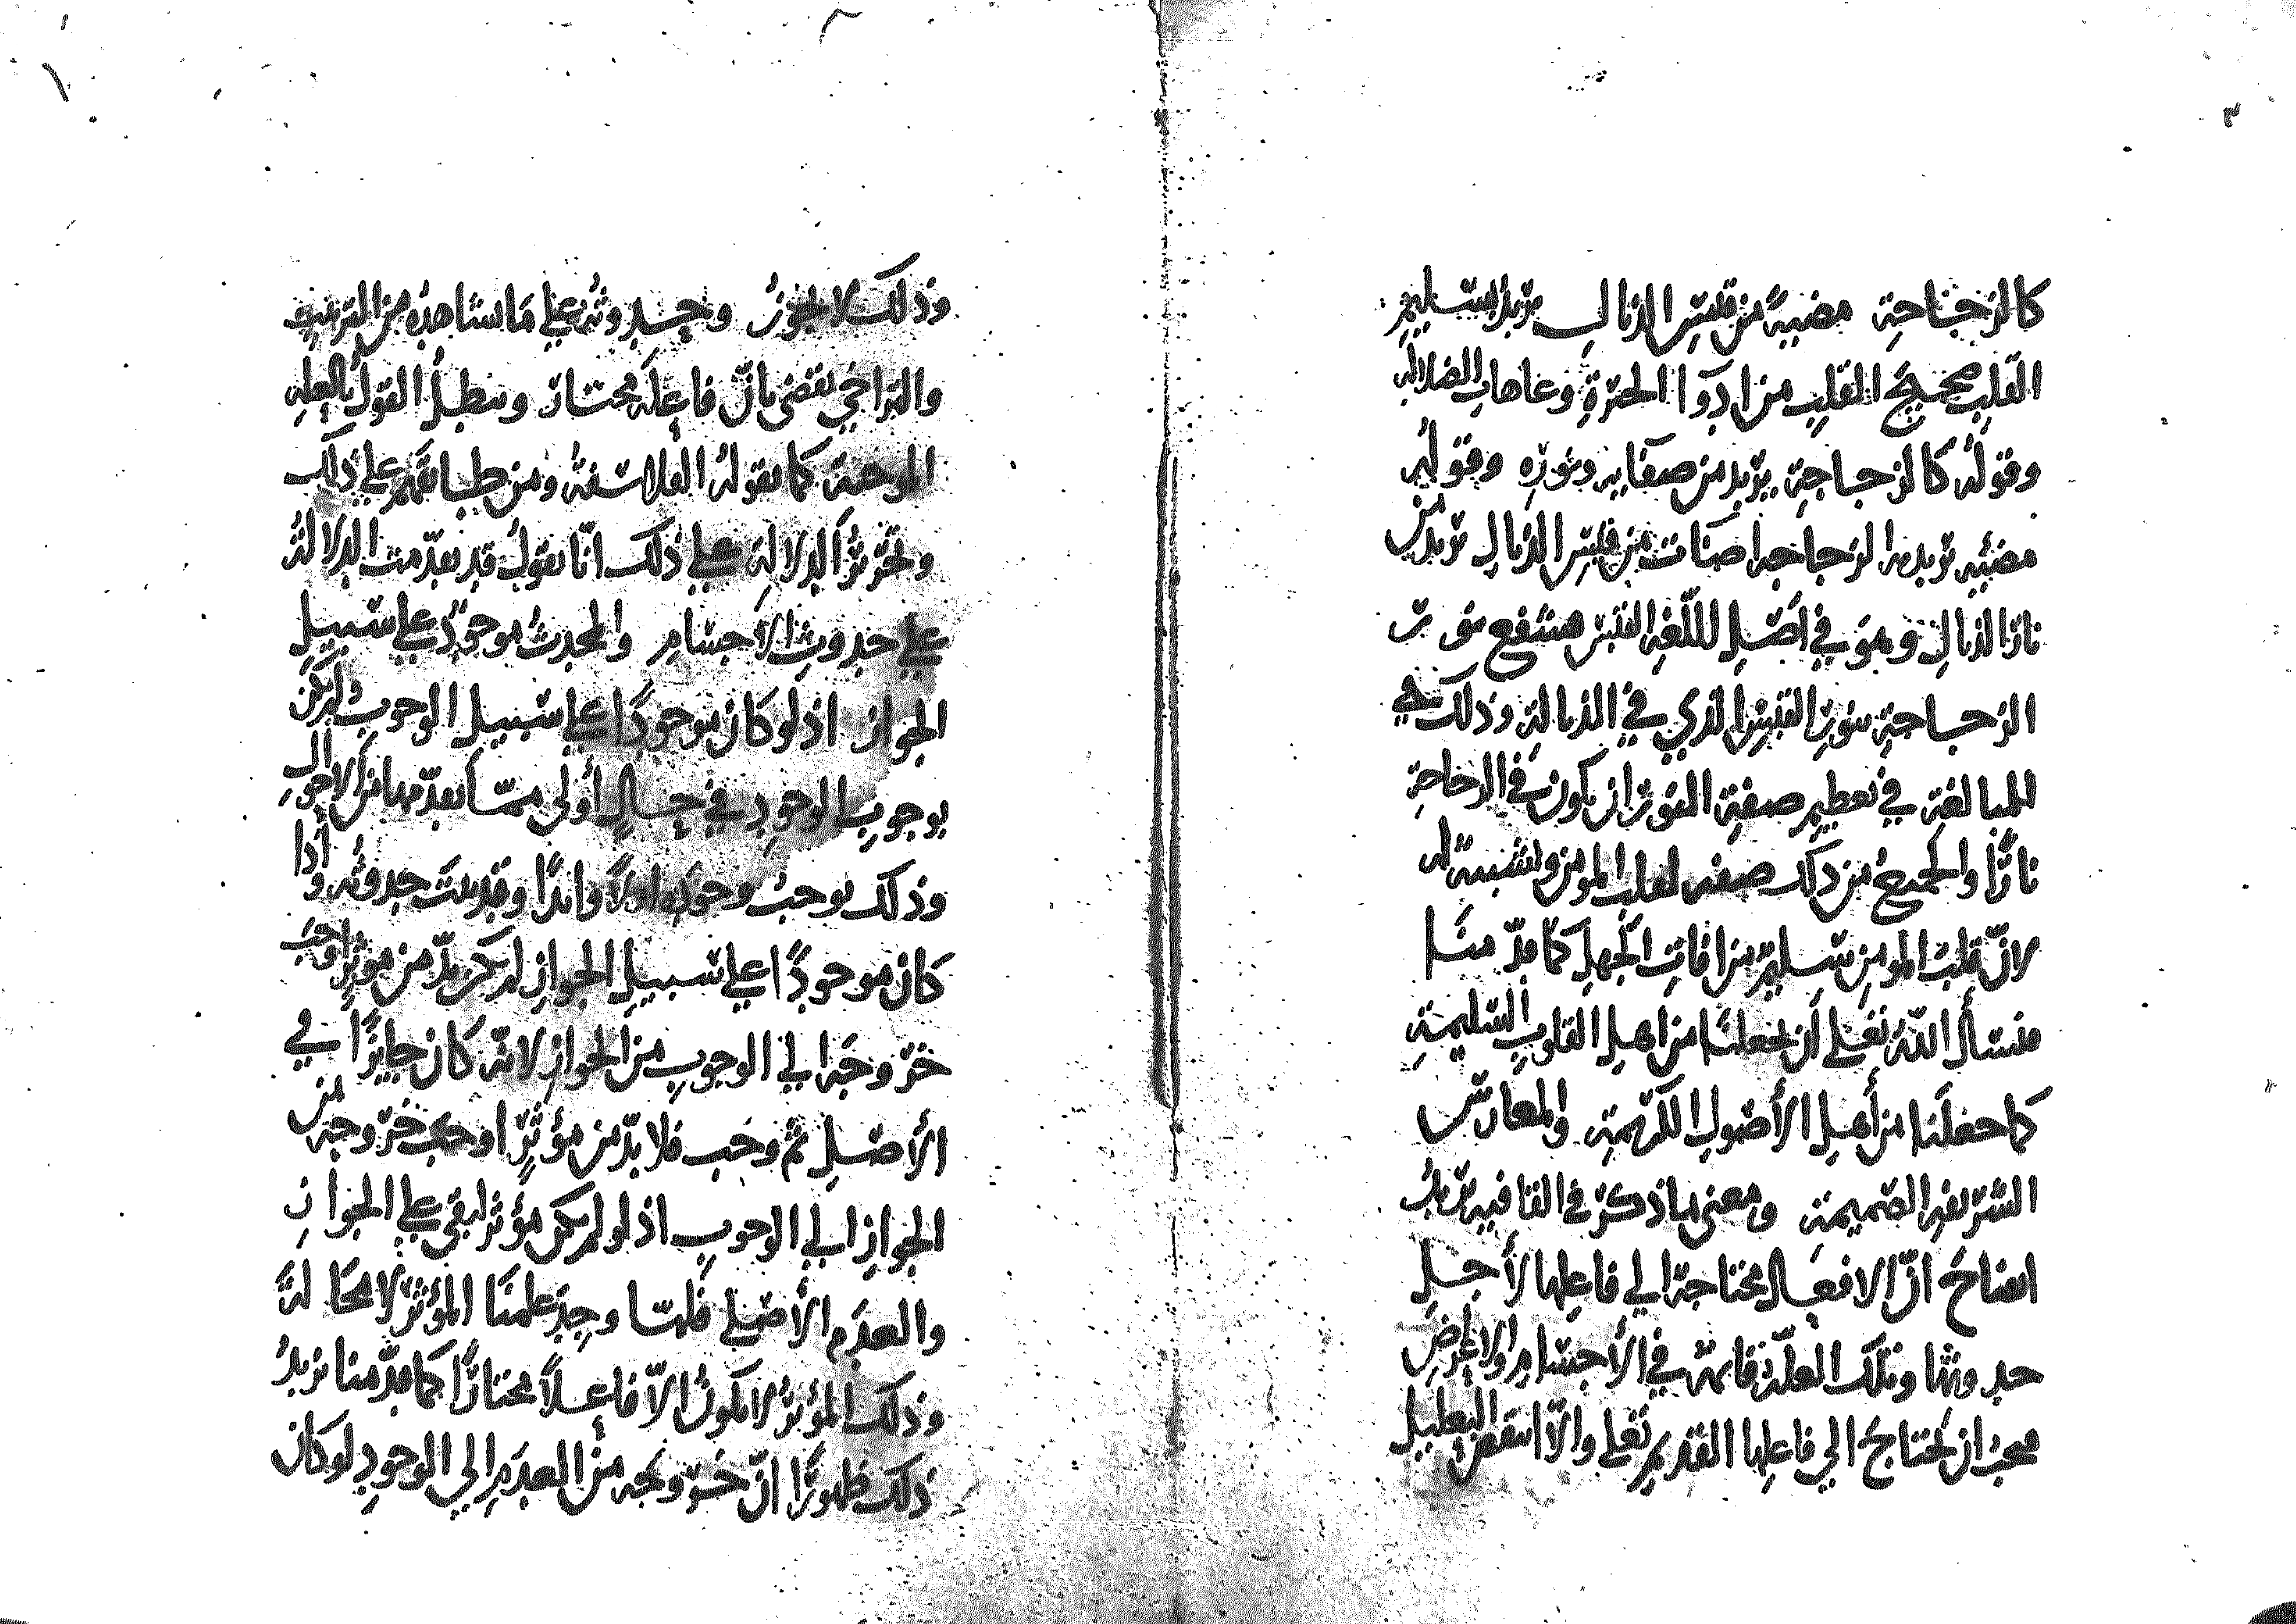 كالزجاجة مضيئة من قبس الذبال يريد سليم
القلب صحيح القلب من ادوا الحيرة وعاهات الضلاله
وقوله كالزجاجة يريد من صفايه ونوره وقوله
مضيئه يريد به الزجاجه اضات من قبس الذبال يريد من
نار الذبال وهو في اصل اللغة القبس منتفع نور
الزجاجة بنور القبس الذي في الذبالة وذلك في
المبالغة في تعظيم صفة النور ان يكون في الزجاجة
نارًا والجميع من ذلك صفه لقلب المومن وتشبيه له
لانّ قلب المومن سليم من افات الجهل كما قدّمنا
فنسأل الله تعلى أن يجعلنا من اهل القلوب السليمة
كما جعلنا من أهل الأصول الكريمة والمغارس
الشريفة الصميمة ومعنى ما ذكر في القافيه يريد
ايضاح انّ الافعال محتاجة الي فاعلها لأجل
حدوثها وتلك العلّة قائمة في الأجسام والاعراض
فيجب ان تحتاج الي فاعلها القديم تعلى والاّ انتقض التعليل
وذلك لا يجوز وحدوثه على ما شاهده من الترتيب
والتراخي يقضي بانّ فاعله مختار ويبطل القول بالعله
الموجبة كما يقوله الفلاسفة ومن طابقهم على ذلك
وتحرير الدلالة على ذلك انّا نقول قد تقدّمت الدلالة
على حدوث الأجسام والمحدث موجود على سبيل
الجواز اذ لو كان موجودًا على سبيل الوجوب لم يكن
بوجوب الوجود في حال أولى ممّا تقدّمها من الاحوال
وذلك يوجب وجوده اولاً وابدًا وقد بينت حدوثه واذا
كان موجودًا على سبيل الجواز لم يكن بدّ من موثر اوجب
خروجه الي الوجوب من الجواز لانّه كان جايزًا في
الأصل ثم وجب فلا بدّ من مؤثر اوجب خروجه من
الجواز الي الوجوب اذ لو لم يكن مؤثر لبقي على الجواز
والعدم الأصلي فلمّا وجد علمنا المؤثر لا محالة
وذلك المؤثر لا يكون الاّ فاعلاً مختارًا كما قدّمنا يزيد
ذلك ظهورًا انّ خروجه من العدم الي الوجود لو كان